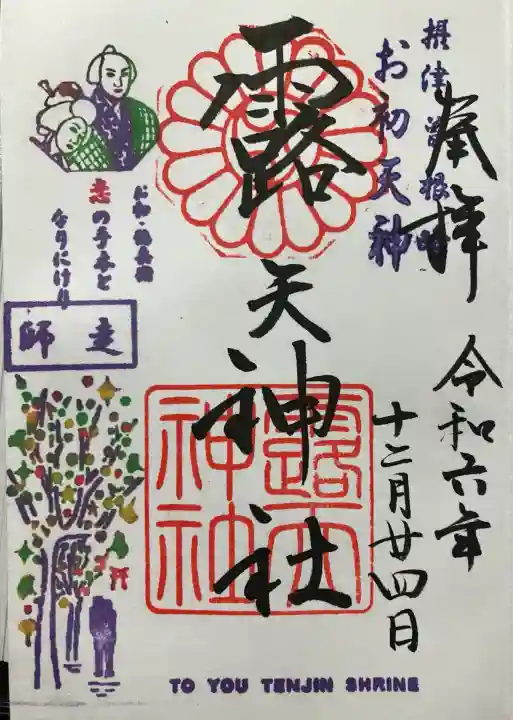 奉拝
令和六年
十二月廿四日
摂津曽根崎
お初天神
露天神社
露天
神社
お初・徳兵衛
恋の手本と
なりにけり
師走
TO YOU TENJIN SHRINE